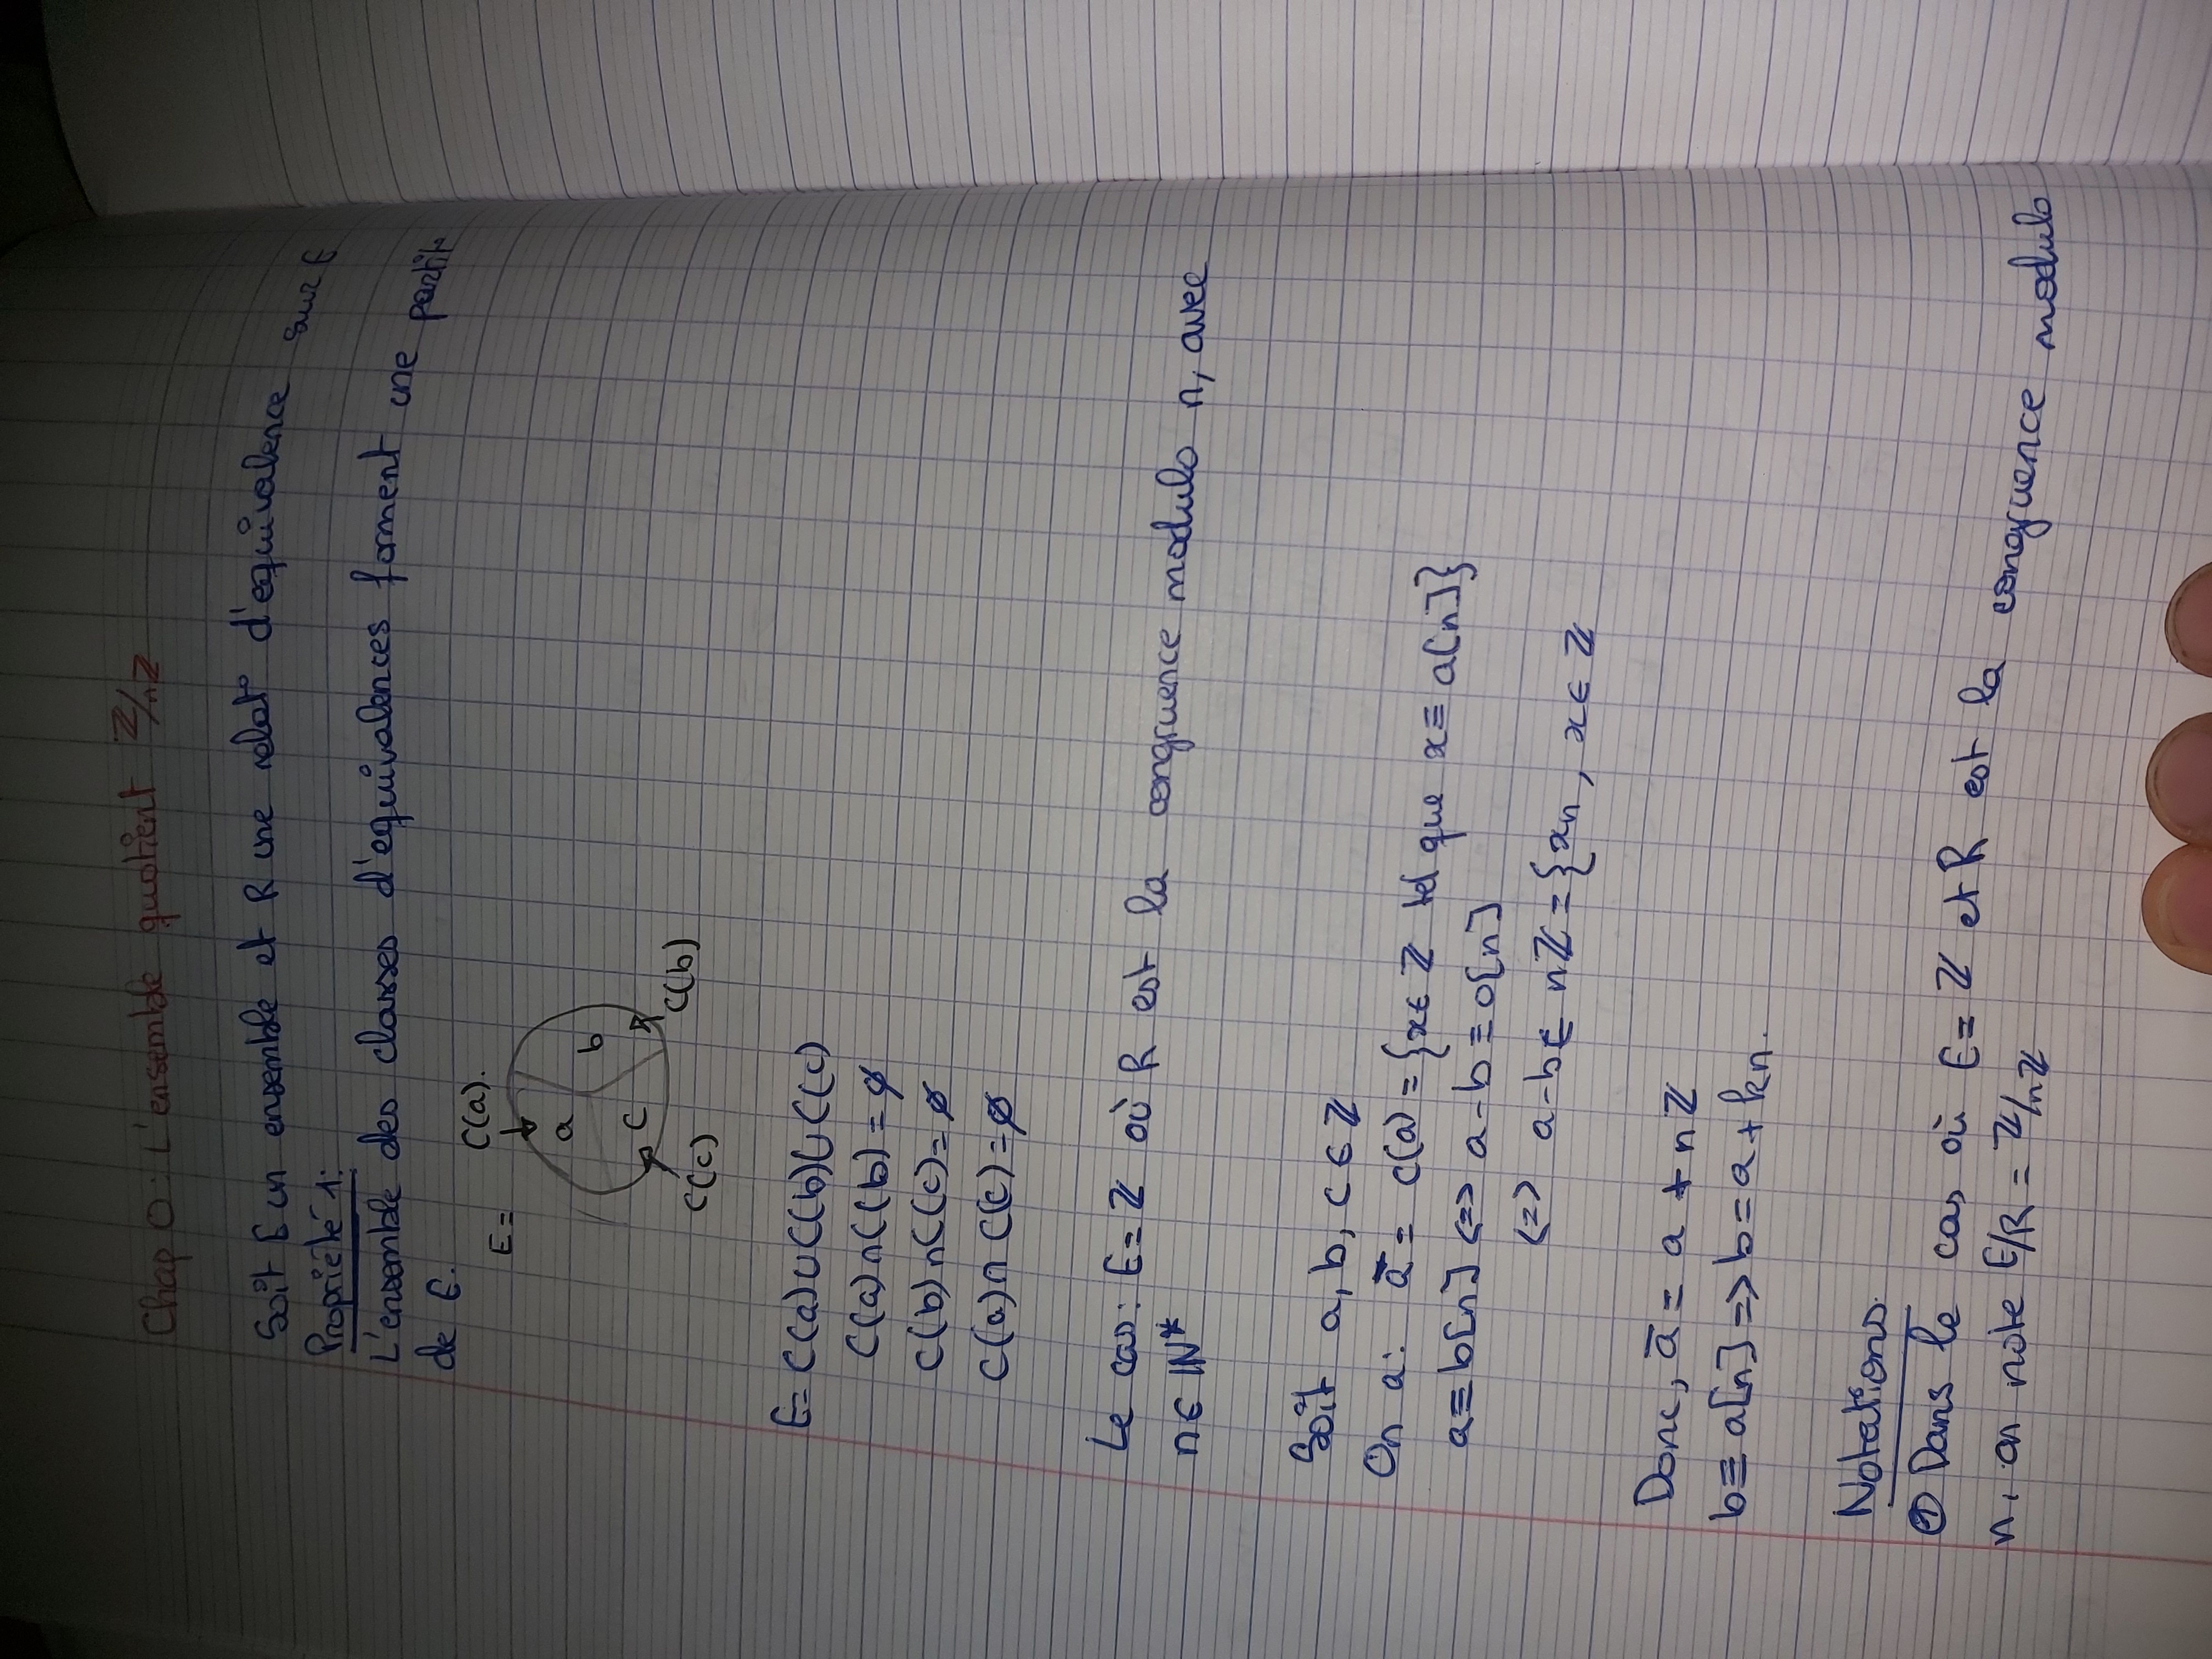 Chap 0 : L'ensemble quotient ℤ/nℤ
Soit E un ensemble et R une relat° d'equivalence sur E
Propriété 1:
L'ensemble des classes d'equivalences forment une partit°
de E.
C(a).
E=
a
b
c
C(b)
C(c)
E= C(a)∪C(b)∪C(c)
C(a)∩C(b) = ∅
C(b)∩C(c) = ∅
C(a)∩C(c) = ∅
Le cas: E= ℤ où R est la congruence modulo n, avec
n∈ ℕ*
Soit a, b, c ∈ ℤ
On a: ā = c(a) = {x∈ ℤ tel que x≡ a[n]}
a≡ b[n] <=> a-b ≡ 0[n]
<=> a-b∈ nℤ = {xn, x∈ ℤ
Donc, ā = a + nℤ
b≡ a[n] => b = a + kn.
Notations
① Dans le cas où E= ℤ et R est la congruence modulo
n, on note E/R = ℤ/nℤ